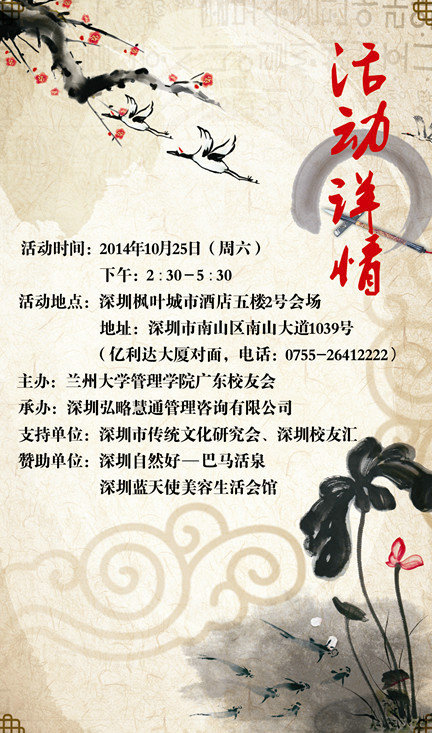 活动详情
活动时间：2014年10月25日（周六）
下午：2：30-5：30
活动地点：深圳枫叶城市酒店五楼2号会场
地址：深圳市南山区南山大道1039号
（亿利达大厦对面，电话：0755-26412222）
主办：兰州大学管理学院广东校友会
承办：深圳弘略慧通管理咨询有限公司
支持单位：深圳市传统文化研究会、深圳校友汇
赞助单位：深圳自然好—巴马活泉
深圳蓝天使美容生活会馆